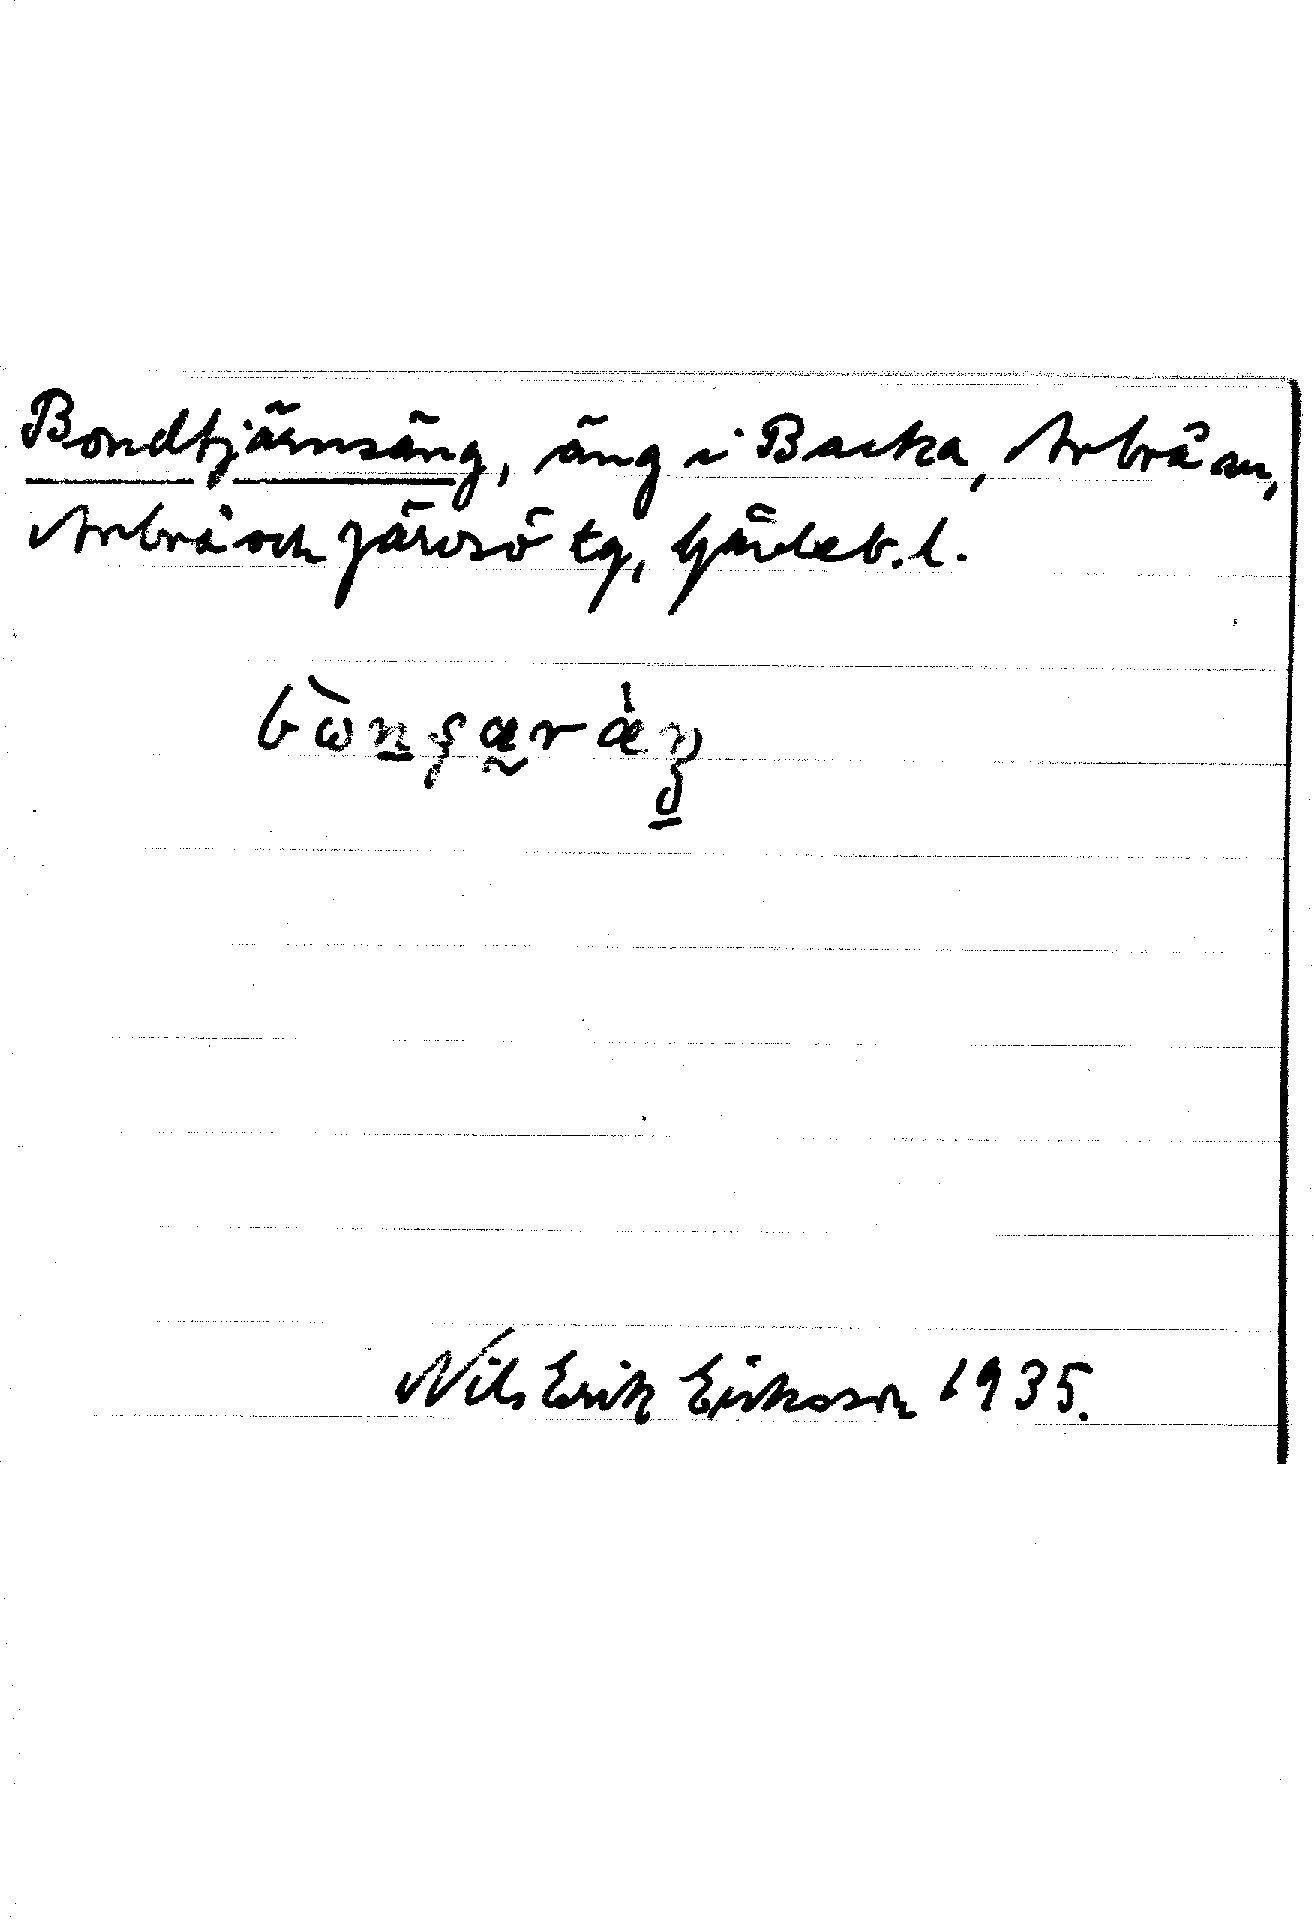 Bondtjärnsäng, äng i Backa, Arbrå sn,
Arbrå och Järvsö tg, Gävleb. l.
Nils Erik Eriksson 1935.